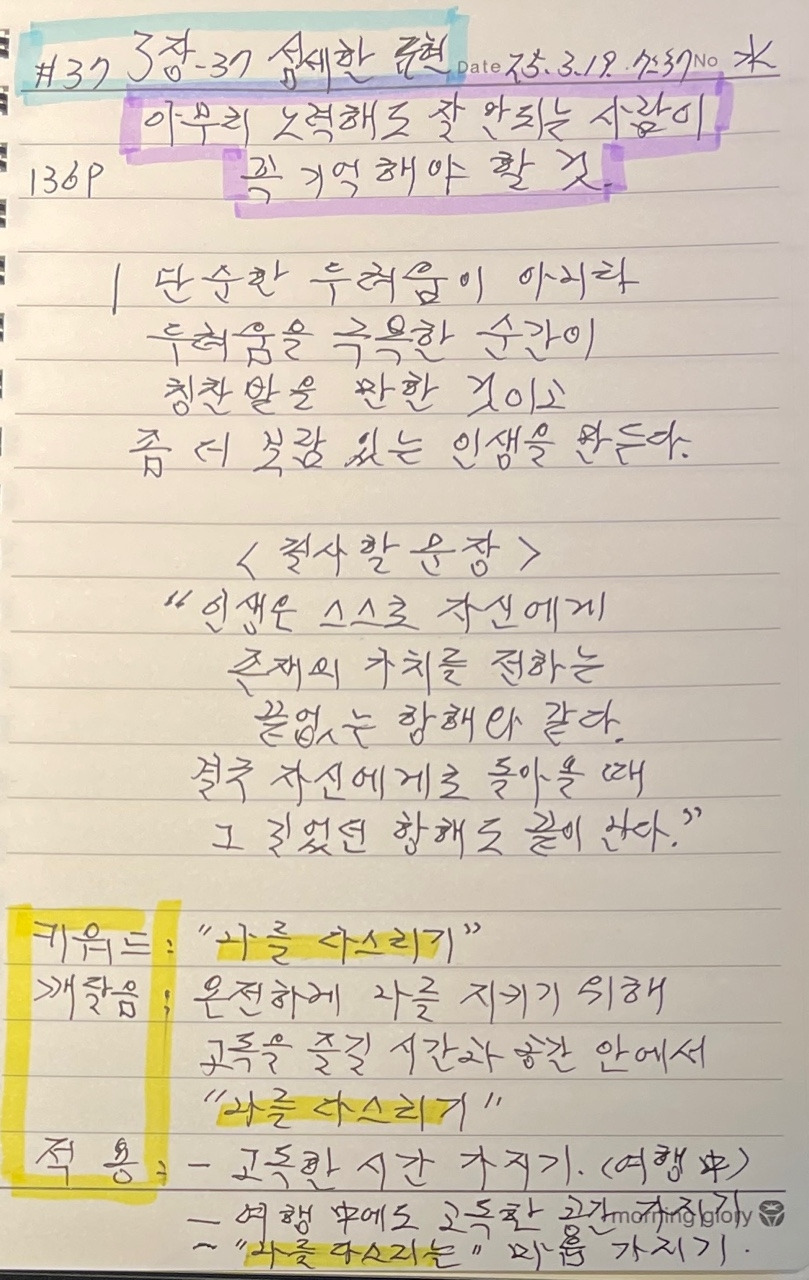 #37 3장-37 섬세한 표현 Date 25.3.19. 7:37 No 水
아무리 노력해도 잘 안되는 사람이
136P 꼭 기억해야 할 것.
단순한 두려움이 아니라
두려움을 극복한 순간이
칭찬 받을 만한 것이고
좀 더 보람 있는 인생을 만든다.
<필사할 문장>
"인생은 스스로 자신에게
존재의 가치를 전하는
끝없는 항해와 같다.
결국 자신에게로 돌아올 때
그 길었던 항해도 끝이 난다."
키워드 : "나를 다스리기"
깨달음 : 온전하게 나를 지키기 위해
고독을 즐길 시간과 공간 안에서
"나를 다스리기"
적용 : - 고독한 시간 가지기. (여행 中)
- 여행 中에도 고독한 공간 가지기
morning glory
- "나를 다스리는" 마음 가지기.